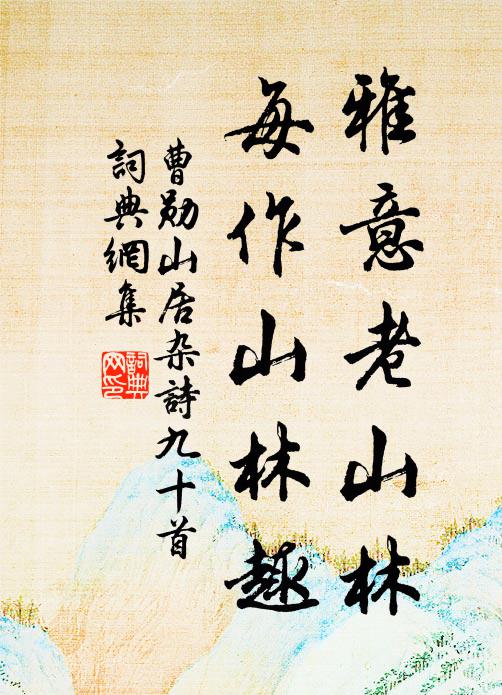 雅意老山林
每作山林趣
曹勛山居杂詩九十首
詞典網集
詞典
网印